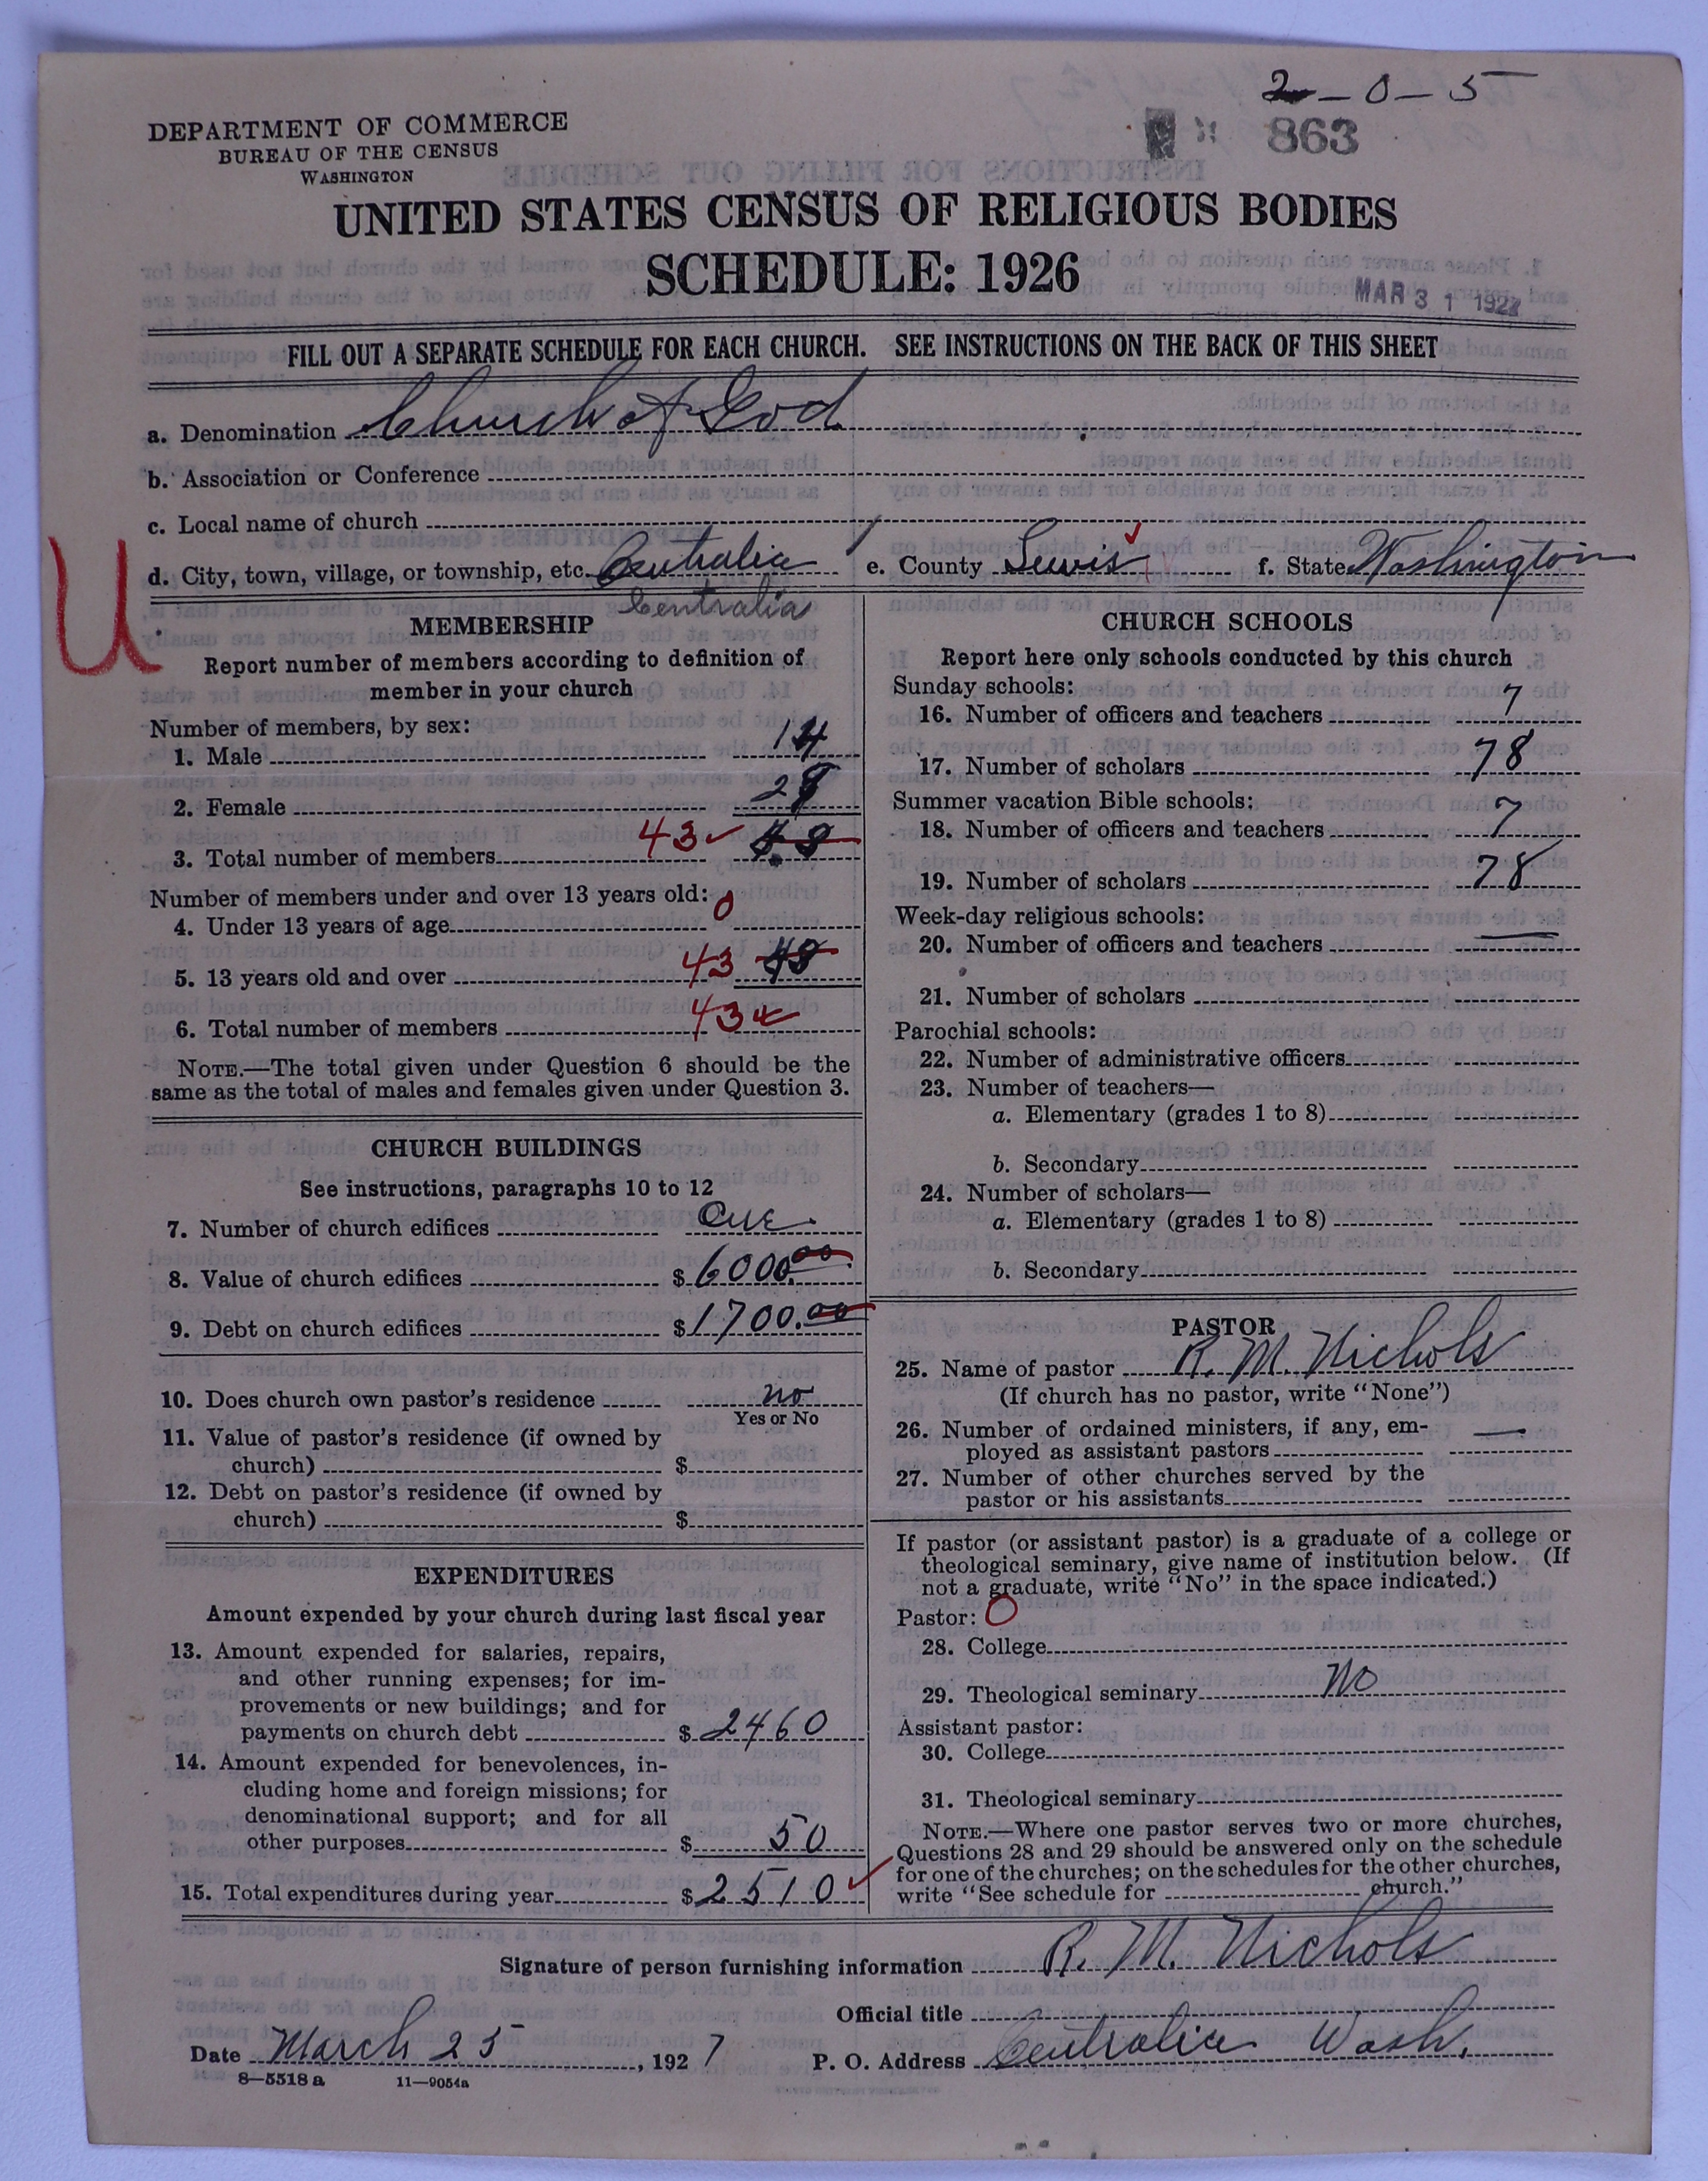 2-0-5
863
DEPARTMENT OF COMMERCE
BUREAU OF THE CENSUS
WASHINGTON
UNITED STATES CENSUS OF RELIGIOUS BODIES
SCHEDULE: 1926
MAR 31 192
FILL OUT A SEPARATE SCHEDULE FOR EACH CHURCH. SEE INSTRUCTIONS ON THE BACK OF THIS SHEET
a. Denomination Church of God
b. Association or Conference
c. Local name of church
d. City, town, village, or township, etc. Centralia e. County Lewis f. State Washington
Centralia
U
MEMBERSHIP
Report number of members according to definition of
member in your church
Number of members, by sex:
1. Male 14
2. Female 29
3. Total number of members 43
Number of members under and over 13 years old:
4. Under 13 years of age 0
5. 13 years old and over 43
6. Total number of members 43
NOTE.—The total given under Question 6 should be the
same as the total of males and females given under Question 3.
CHURCH BUILDINGS
See instructions, paragraphs 10 to 12
7. Number of church edifices One
8. Value of church edifices $ 6000.00
9. Debt on church edifices $ 1700.00
10. Does church own pastor's residence no
Yes or No
11. Value of pastor's residence (if owned by
church) $
12. Debt on pastor's residence (if owned by
church) $
EXPENDITURES
Amount expended by your church during last fiscal year
13. Amount expended for salaries, repairs,
and other running expenses; for im-
provements or new buildings; and for
payments on church debt $ 2460
14. Amount expended for benevolences, in-
cluding home and foreign missions; for
denominational support; and for all
other purposes $ 50
15. Total expenditures during year $ 2510
CHURCH SCHOOLS
Report here only schools conducted by this church
Sunday schools:
16. Number of officers and teachers 7
17. Number of scholars 78
Summer vacation Bible schools:
18. Number of officers and teachers 7
19. Number of scholars 78
Week-day religious schools:
20. Number of officers and teachers —
21. Number of scholars
Parochial schools:
22. Number of administrative officers
23. Number of teachers—
a. Elementary (grades 1 to 8)
b. Secondary
24. Number of scholars—
a. Elementary (grades 1 to 8)
b. Secondary
PASTOR
25. Name of pastor R. M. Nichols
(If church has no pastor, write "None")
26. Number of ordained ministers, if any, em-
ployed as assistant pastors —
27. Number of other churches served by the
pastor or his assistants
If pastor (or assistant pastor) is a graduate of a college or
theological seminary, give name of institution below. (If
not a graduate, write "No" in the space indicated.)
Pastor: O
28. College
29. Theological seminary No
Assistant pastor:
30. College
31. Theological seminary
NOTE.—Where one pastor serves two or more churches,
Questions 28 and 29 should be answered only on the schedule
for one of the churches; on the schedules for the other churches,
write "See schedule for church."
Signature of person furnishing information R. M. Nichols
Official title
Date March 25, 1927 P. O. Address Centralia Wash.
8—5518 a 11—9054a